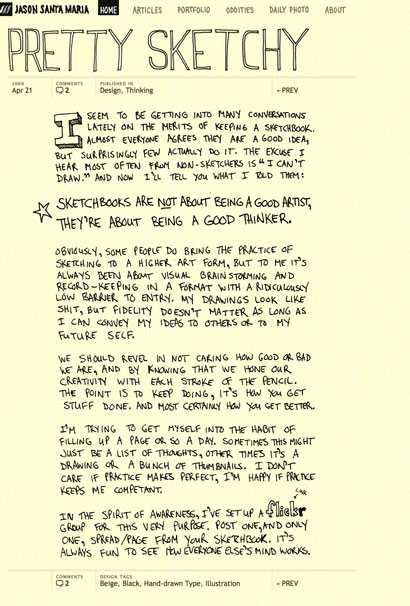 JASON SANTA MARIA HOME ARTICLES PORTFOLIO ODDITIES DAILY PHOTO ABOUT
PRETTY SKETCHY
2009 COMMENTS PUBLISHED IN
Apr 21 2 Design, Thinking « PREV
I SEEM TO BE GETTING INTO MANY CONVERSATIONS
LATELY ON THE MERITS OF KEEPING A SKETCHBOOK.
ALMOST EVERYONE AGREES THEY ARE A GOOD IDEA,
BUT SURPRISINGLY FEW ACTUALLY DO IT. THE EXCUSE I
HEAR MOST OFTEN FROM NON-SKETCHERS IS "I CAN'T
DRAW." AND NOW I'LL TELL YOU WHAT I TOLD THEM:
SKETCHBOOKS ARE NOT ABOUT BEING A GOOD ARTIST,
THEY'RE ABOUT BEING A GOOD THINKER.
OBVIOUSLY, SOME PEOPLE DO BRING THE PRACTICE OF
SKETCHING TO A HIGHER ART FORM, BUT TO ME IT'S
ALWAYS BEEN ABOUT VISUAL BRAINSTORMING AND
RECORD-KEEPING IN A FORMAT WITH A RIDICULOUSLY
LOW BARRIER TO ENTRY. MY DRAWINGS LOOK LIKE
SHIT, BUT FIDELITY DOESN'T MATTER AS LONG AS
I CAN CONVEY MY IDEAS TO OTHERS OR TO MY
FUTURE SELF.
WE SHOULD REVEL IN NOT CARING HOW GOOD OR BAD
WE ARE, AND BY KNOWING THAT WE HONE OUR
CREATIVITY WITH EACH STROKE OF THE PENCIL.
THE POINT IS TO KEEP DOING, IT'S HOW YOU GET
STUFF DONE. AND MOST CERTAINLY HOW YOU GET BETTER.
I'M TRYING TO GET MYSELF INTO THE HABIT OF
FILLING UP A PAGE OR SO A DAY. SOMETIMES THIS MIGHT
JUST BE A LIST OF THOUGHTS, OTHER TIMES IT'S A
DRAWING OR A BUNCH OF THUMBNAILS. I DON'T
CARE IF PRACTICE MAKES PERFECT, I'M HAPPY IF PRACTICE
KEEPS ME COMPETANT.
LINK
IN THE SPIRIT OF AWARENESS, I'VE SET UP A flickr
GROUP FOR THIS VERY PURPOSE. POST ONE, AND ONLY
ONE, SPREAD/PAGE FROM YOUR SKETCHBOOK. IT'S
ALWAYS FUN TO SEE HOW EVERYONE ELSE'S MIND WORKS.
COMMENTS DESIGN TAGS
2 Beige, Black, Hand-drawn Type, Illustration « PREV